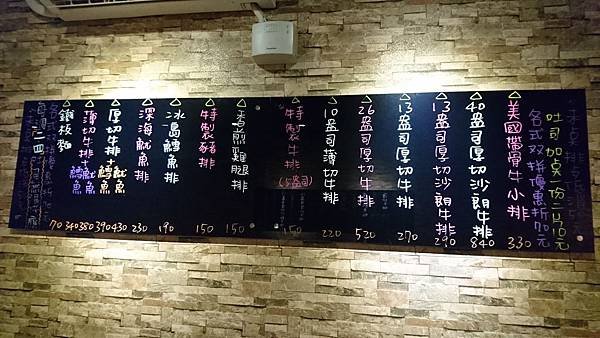 吐司加點一份二片10元
各式双拼優惠折70元
美國帶骨牛小排 330
40盎司厚切沙朗牛排 840
13盎司厚切沙朗牛排 290
13盎司厚切牛排 270
26盎司厚切牛排 520
10盎司薄切牛排 220
特製牛排(5盎司) 150
香煎雞腿排 150
特製豬排 150
冰島鱈魚排 190
深海魷魚排 230
厚切牛排+魷魚 430
鱈魚 390
薄切牛排+魷魚 380
鱈魚 340
鐵板麵 70